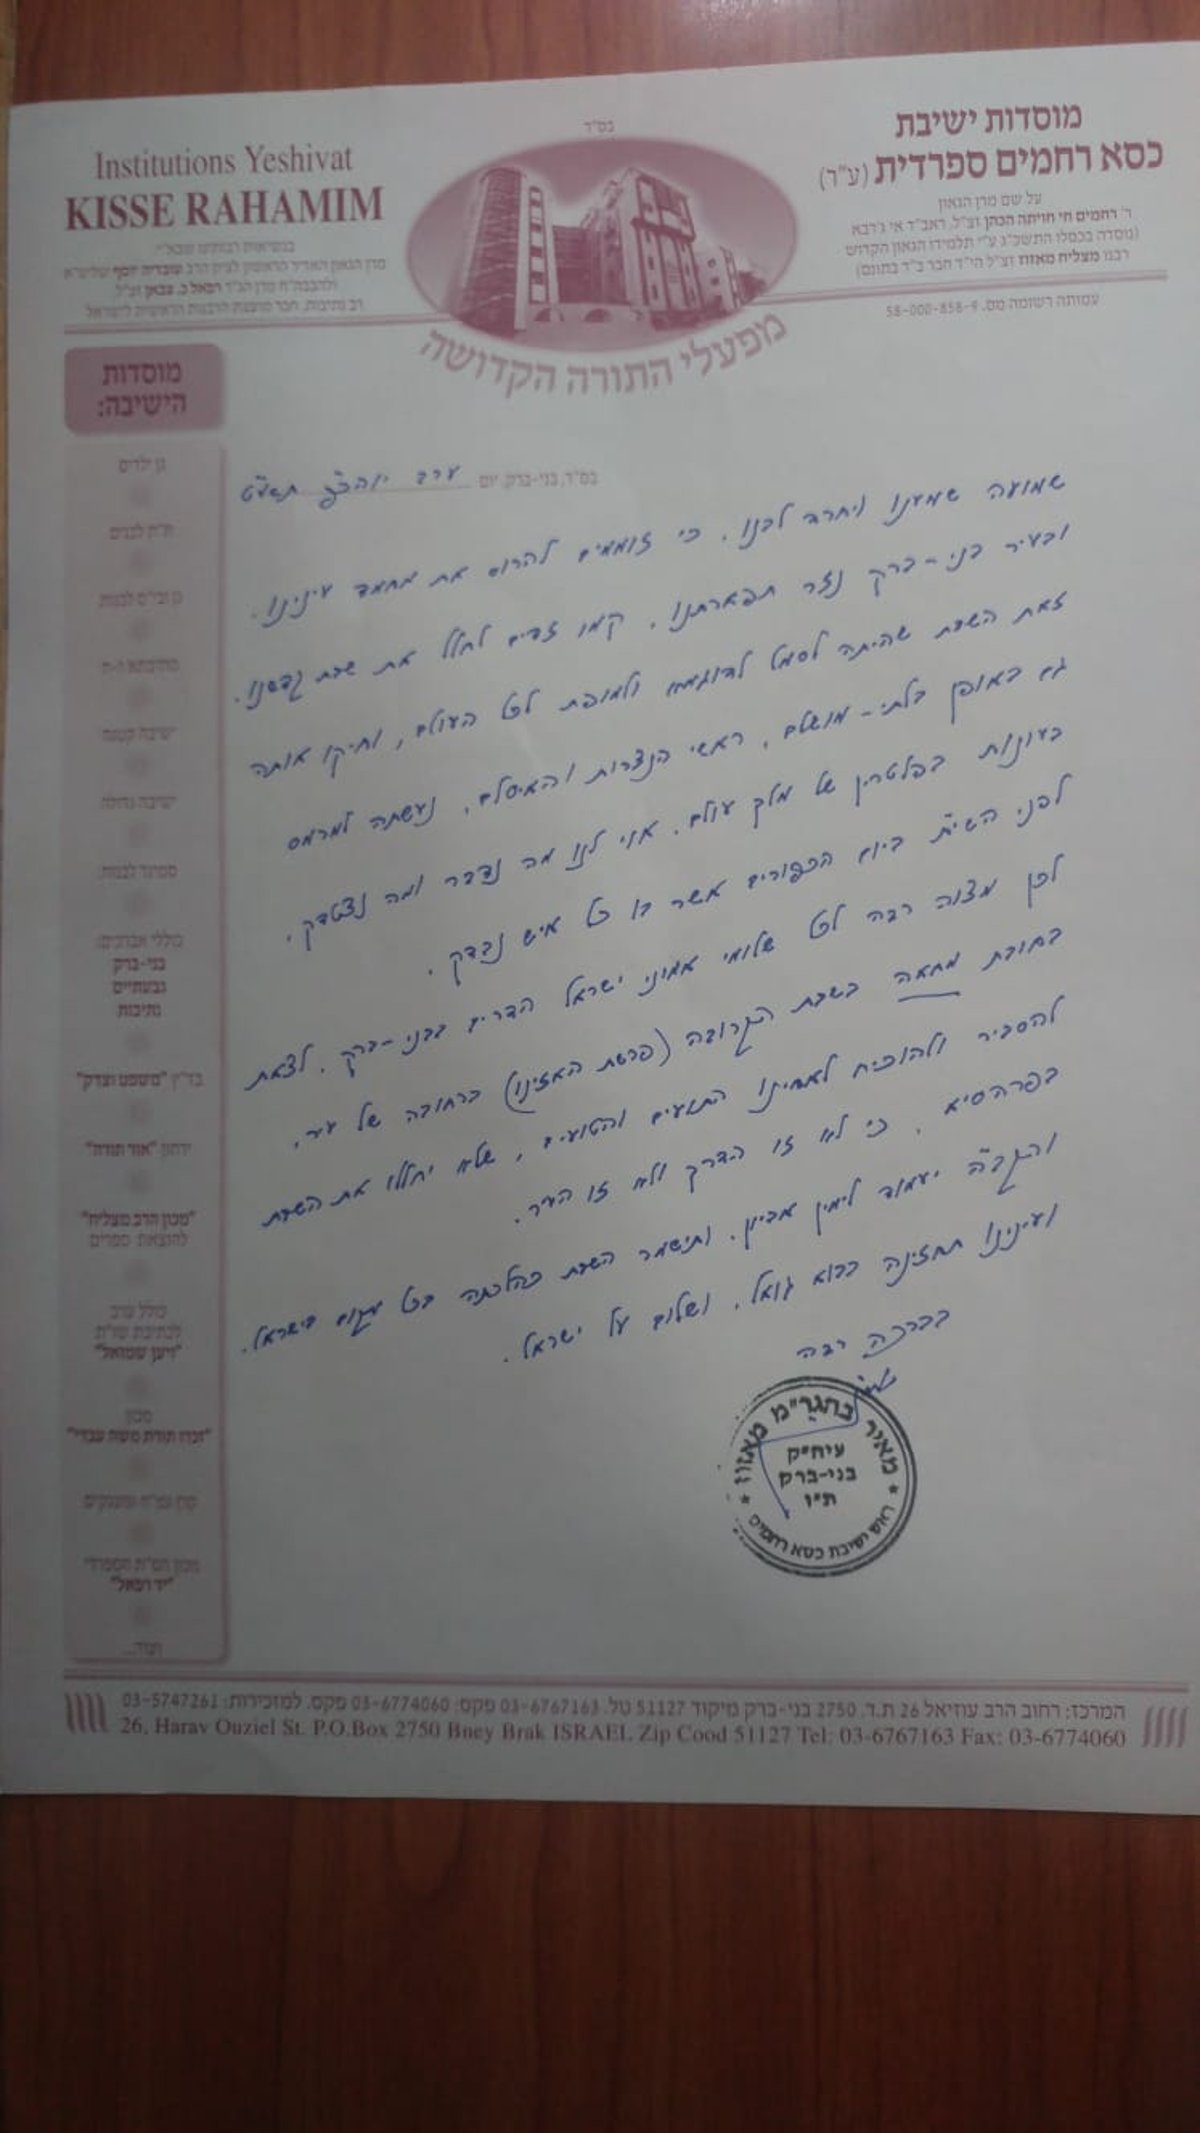 בס"ד
מוסדות ישיבת
כסא רחמים ספרדית (ע"ר)
על שם מרן הגאון
ר' רחמים חי חויתה הכהן זצ"ל, ראב"ד אי ג'רבא
(נוסדה בכסלו התשכ"ג ע"י תלמידו הגאון הקדוש
רבנו מצליח מאזוז זצ"ל הי"ד חבר ב"ד בתונס)
עמותה רשומה מס. 58-000-858-9
Institutions Yeshivat
KISSE RAHAMIM
בנשיאות רבותינו שבא"י
מרן הגאון האדיר הראשון לציון הרב עובדיה יוסף שליט"א
ולהבבח"ח מרן הג"ר רפאל כ. צבאן זצ"ל
רב נתיבות, חבר מועצת הרבנות הראשית לישראל
מפעלי התורה הקדושה
מוסדות
הישיבה:
גן ילדים
ת"ת לבנים
גן ובי"ס לבנות
מתיבתא ז-ח
ישיבה קטנה
ישיבה גדולה
סמינר לבנות
כוללי אברכים:
בני-ברק
גבעתיים
נתיבות
בד"ץ "משפט וצדק"
ירחון "אור תורה"
"מכון הרב מצליח"
להוצאת ספרים
כולל ערב
לכתיבת שו"ת
"ויען שמואל"
מכון
"זכרו תורת משה עבדי"
מכון הש"ס הספרדי
"יד רפאל"
ועוד...
בס"ד, בני-ברק, יום ערב יוהכ"פ תשע"ט
שמועה שמענו ויחרד לבנו, כי זוממים להרוס את מחמד עינינו.
ובעיר בני-ברק נזר תפארתנו, קמו זדים לחלל את שבת קדשנו.
זאת השבת שהיתה לסמל לדוגמא ולמופת לכל העולם, וחיקו אותה
גם באופן בלתי-מושלם, ראשי הנצרות והאיסלם, נעשתה למרמס
בעונות בפלטרין של מלך עולם. אוי לנו מה נדבר ומה נצטדק,
לפני השי"ת ביום הכפורים אשר בו כל איש נבדק.
לכן מצוה רבה לכל שלומי אמוני ישראל הדרים בבני-ברק, לצאת
בחובת מחאה בשבת הקרובה (פרשת האזינו) ברחובה של עיר,
להסביר ולהוכיח לאחינו התועים והטועים, שלא יחללו את השבת
בפרהסיא, כי לא זו הדרך ולא זו העיר.
והקב"ה יעמוד לימין אביון, ותישמר השבת כהלכתה בכל מקום בישראל.
ועינינו תחזינה בבוא גואל, ושלום על ישראל.
בברכה רבה
מאיר בהגר"מ מאזוז
עיח"ק
בני-ברק
ת"ו
ראש ישיבת כסא רחמים
המרכז: רחוב הרב עוזיאל 26 ת.ד. 2750 בני-ברק מיקוד 51127 טל. 03-6767163 פקס: 03-6774060 פקס. למזכירות: 03-5747261
26, Harav Ouziel St. P.O.Box 2750 Bney Brak ISRAEL Zip Cood 51127 Tel: 03-6767163 Fax: 03-6774060